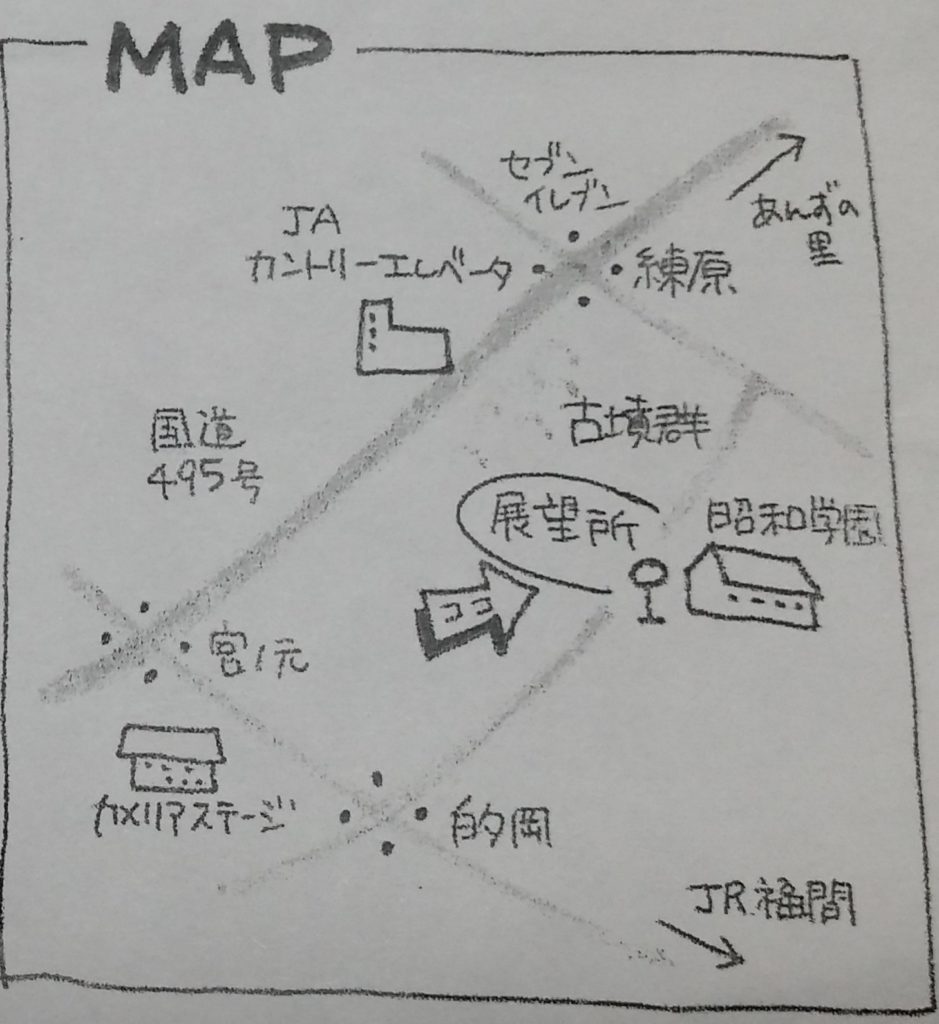 MAP
セブン
イレブン
あんずの
里
JA
カントリーエレベータ
練原
国道
495号
古墳群
展望所
昭和学園
ココ
宮ノ元
カメリアステージ
的岡
JR福間